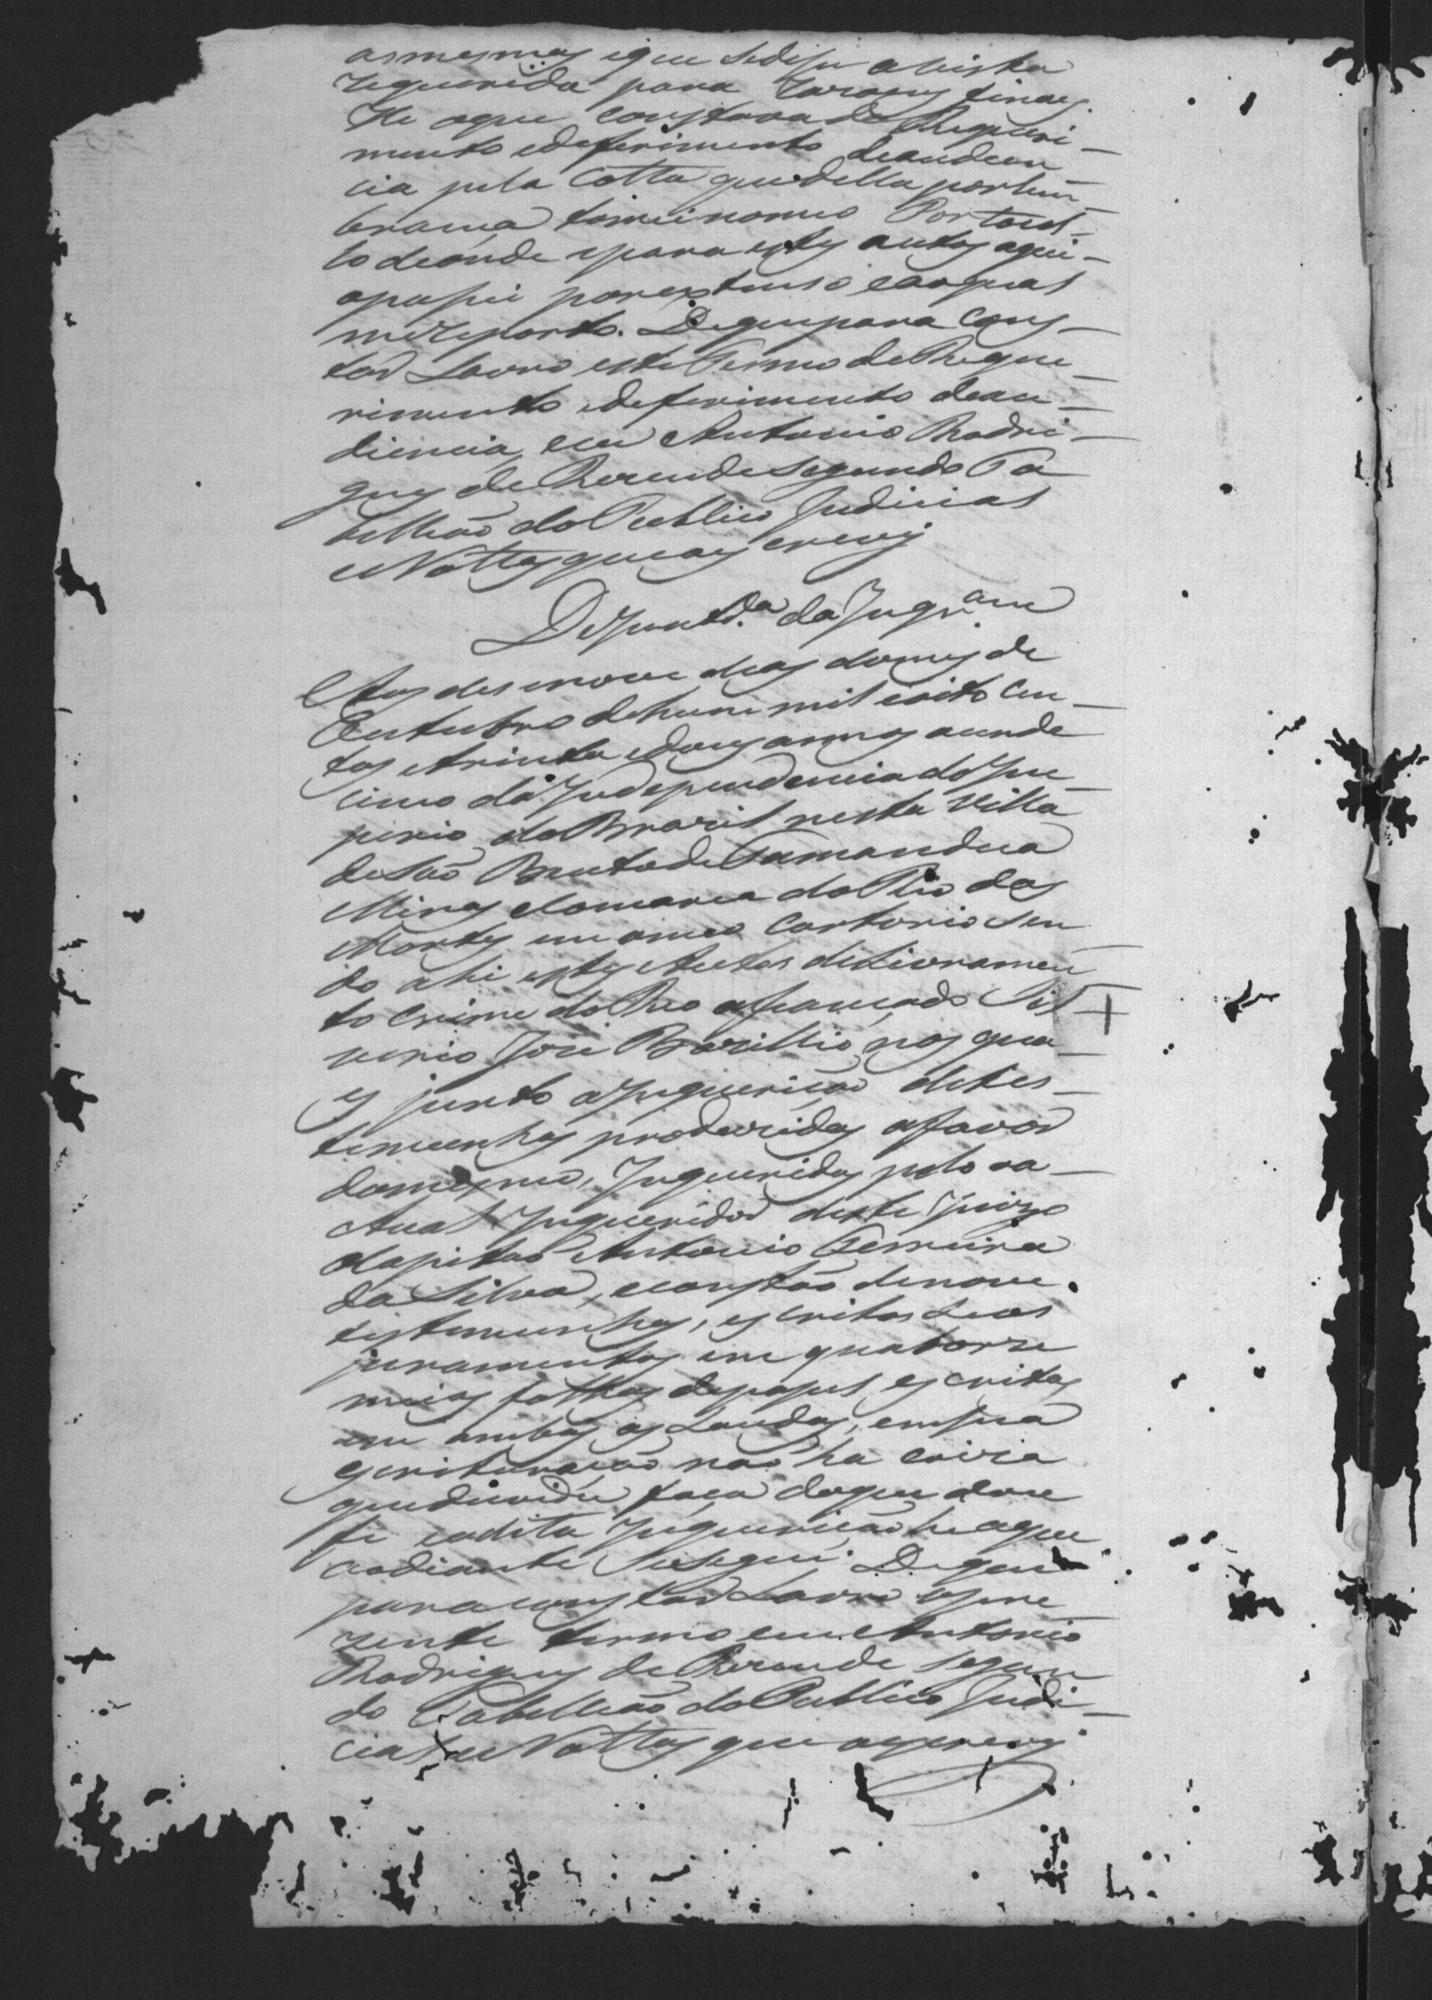 as mesmas, e que se desse a vista
requerida para razoens finaes.
He o que constava do Requeri-
mento e deferimento de audien-
cia pela Cotta que della por lem-
brança tomei no meu Portocol-
lo de onde e para estes autos aqui
a passei por extenso e ao qual
me reporto. De que para Cons-
tar Lavro este Termo de Reque-
rimento e deferimento de au-
diencia, e eu Antonio Rodri-
gues de Rezende Segundo Ta
bellião do Publico Judicial
e Nottas que o escrevy
De junta da da Inqr.am
Aos desenove dias do mes de
Outubro de hum mil e oito cen-
tos e trinta e dous annos, a unde
cimo da Independencia do Im-
perio do Brazil nesta Villa
de São Bento do Tamandua
Minas e Comarca do Rio das
Mortes, em o meu Cartorio sen
do ahi estes Autos de Livramen
to crime do Reo afiançado Sil
verio José Bazillio, nos qua-
es junto a Inquirição de tes-
timunhas produzidas a favor
do mesmo, Inqueridas pelo a-
ctual Inqueridor deste Juizo
Capitão Antonio Ferreira
da Silva, e constão de nove
testemunhas, escritos seos
juramentos em quatorze
meias folhas de papel, escritas
em ambas as Laudas, em sua
escrituração não ha coiza
que duvida faça do que dou
fé e a dita Inquirição he a que
ao diante Se Segue. De que
para constar Lavro o pre
zente termo e eu Antonio
Rodrigues de Rezende Segun
do Tabellião do Publico Judi-
cial e Nottas que o escrevy